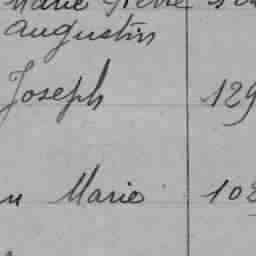 Marie Pierre
Augustin
Joseph 129
Marie 102